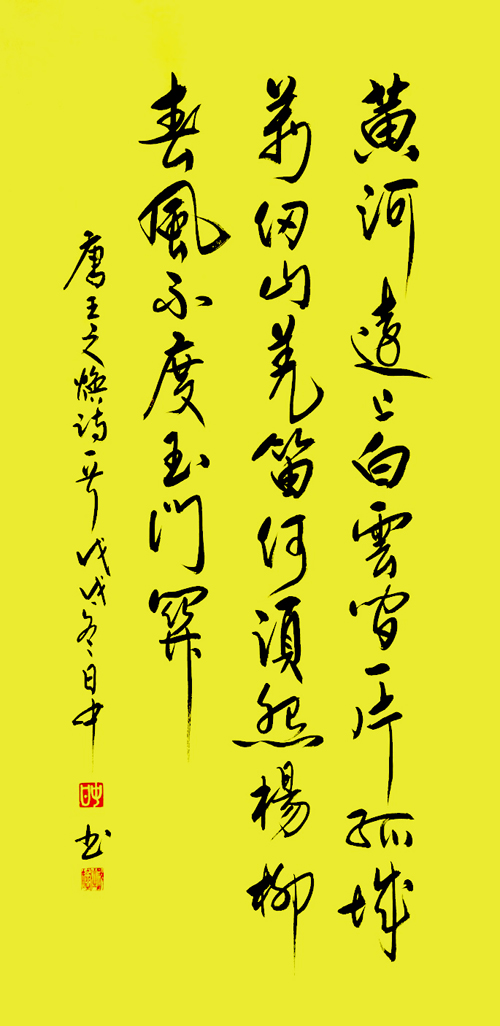 黃河遠上白雲間一片孤城
萬仞山羌笛何須怨楊柳
春風不度玉門關
唐王之煥詩一首戊戌冬日中
书